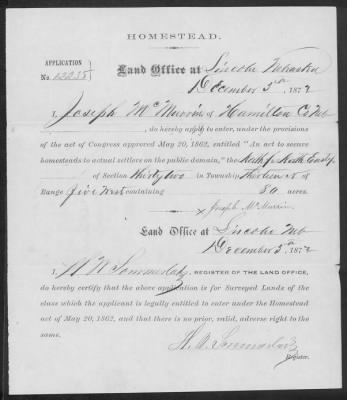 HOMESTEAD.
APPLICATION
Land Office at Lincoln Nebraska
No.
December 5th 1872
I, Joseph McMurrin of Hamilton Co Neb
, do hereby apply to enter, under the provisions
of the act of Congress approved May 20, 1862, entitled "An act to secure
homesteads to actual settlers on the public domain," the North ½ North East ¼
of Section Thirty two in Township Thirteen N of
Range Five West containing 80 acres.
Joseph McMurrin
Land Office at Lincoln Neb
December 5th 1872
I, REGISTER OF THE LAND OFFICE,
do hereby certify that the above application is for Surveyed Lands of the
class which the applicant is legally entitled to enter under the Homestead
act of May 20, 1862, and that there is no prior, valid, adverse right to the
same.
Register.